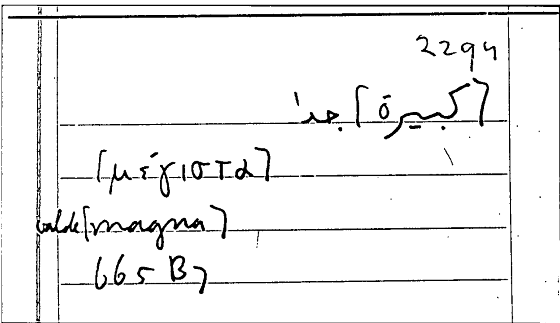 2294
[كبيرة] جدا
[μέγιστα]
valde [magna]
665 B7